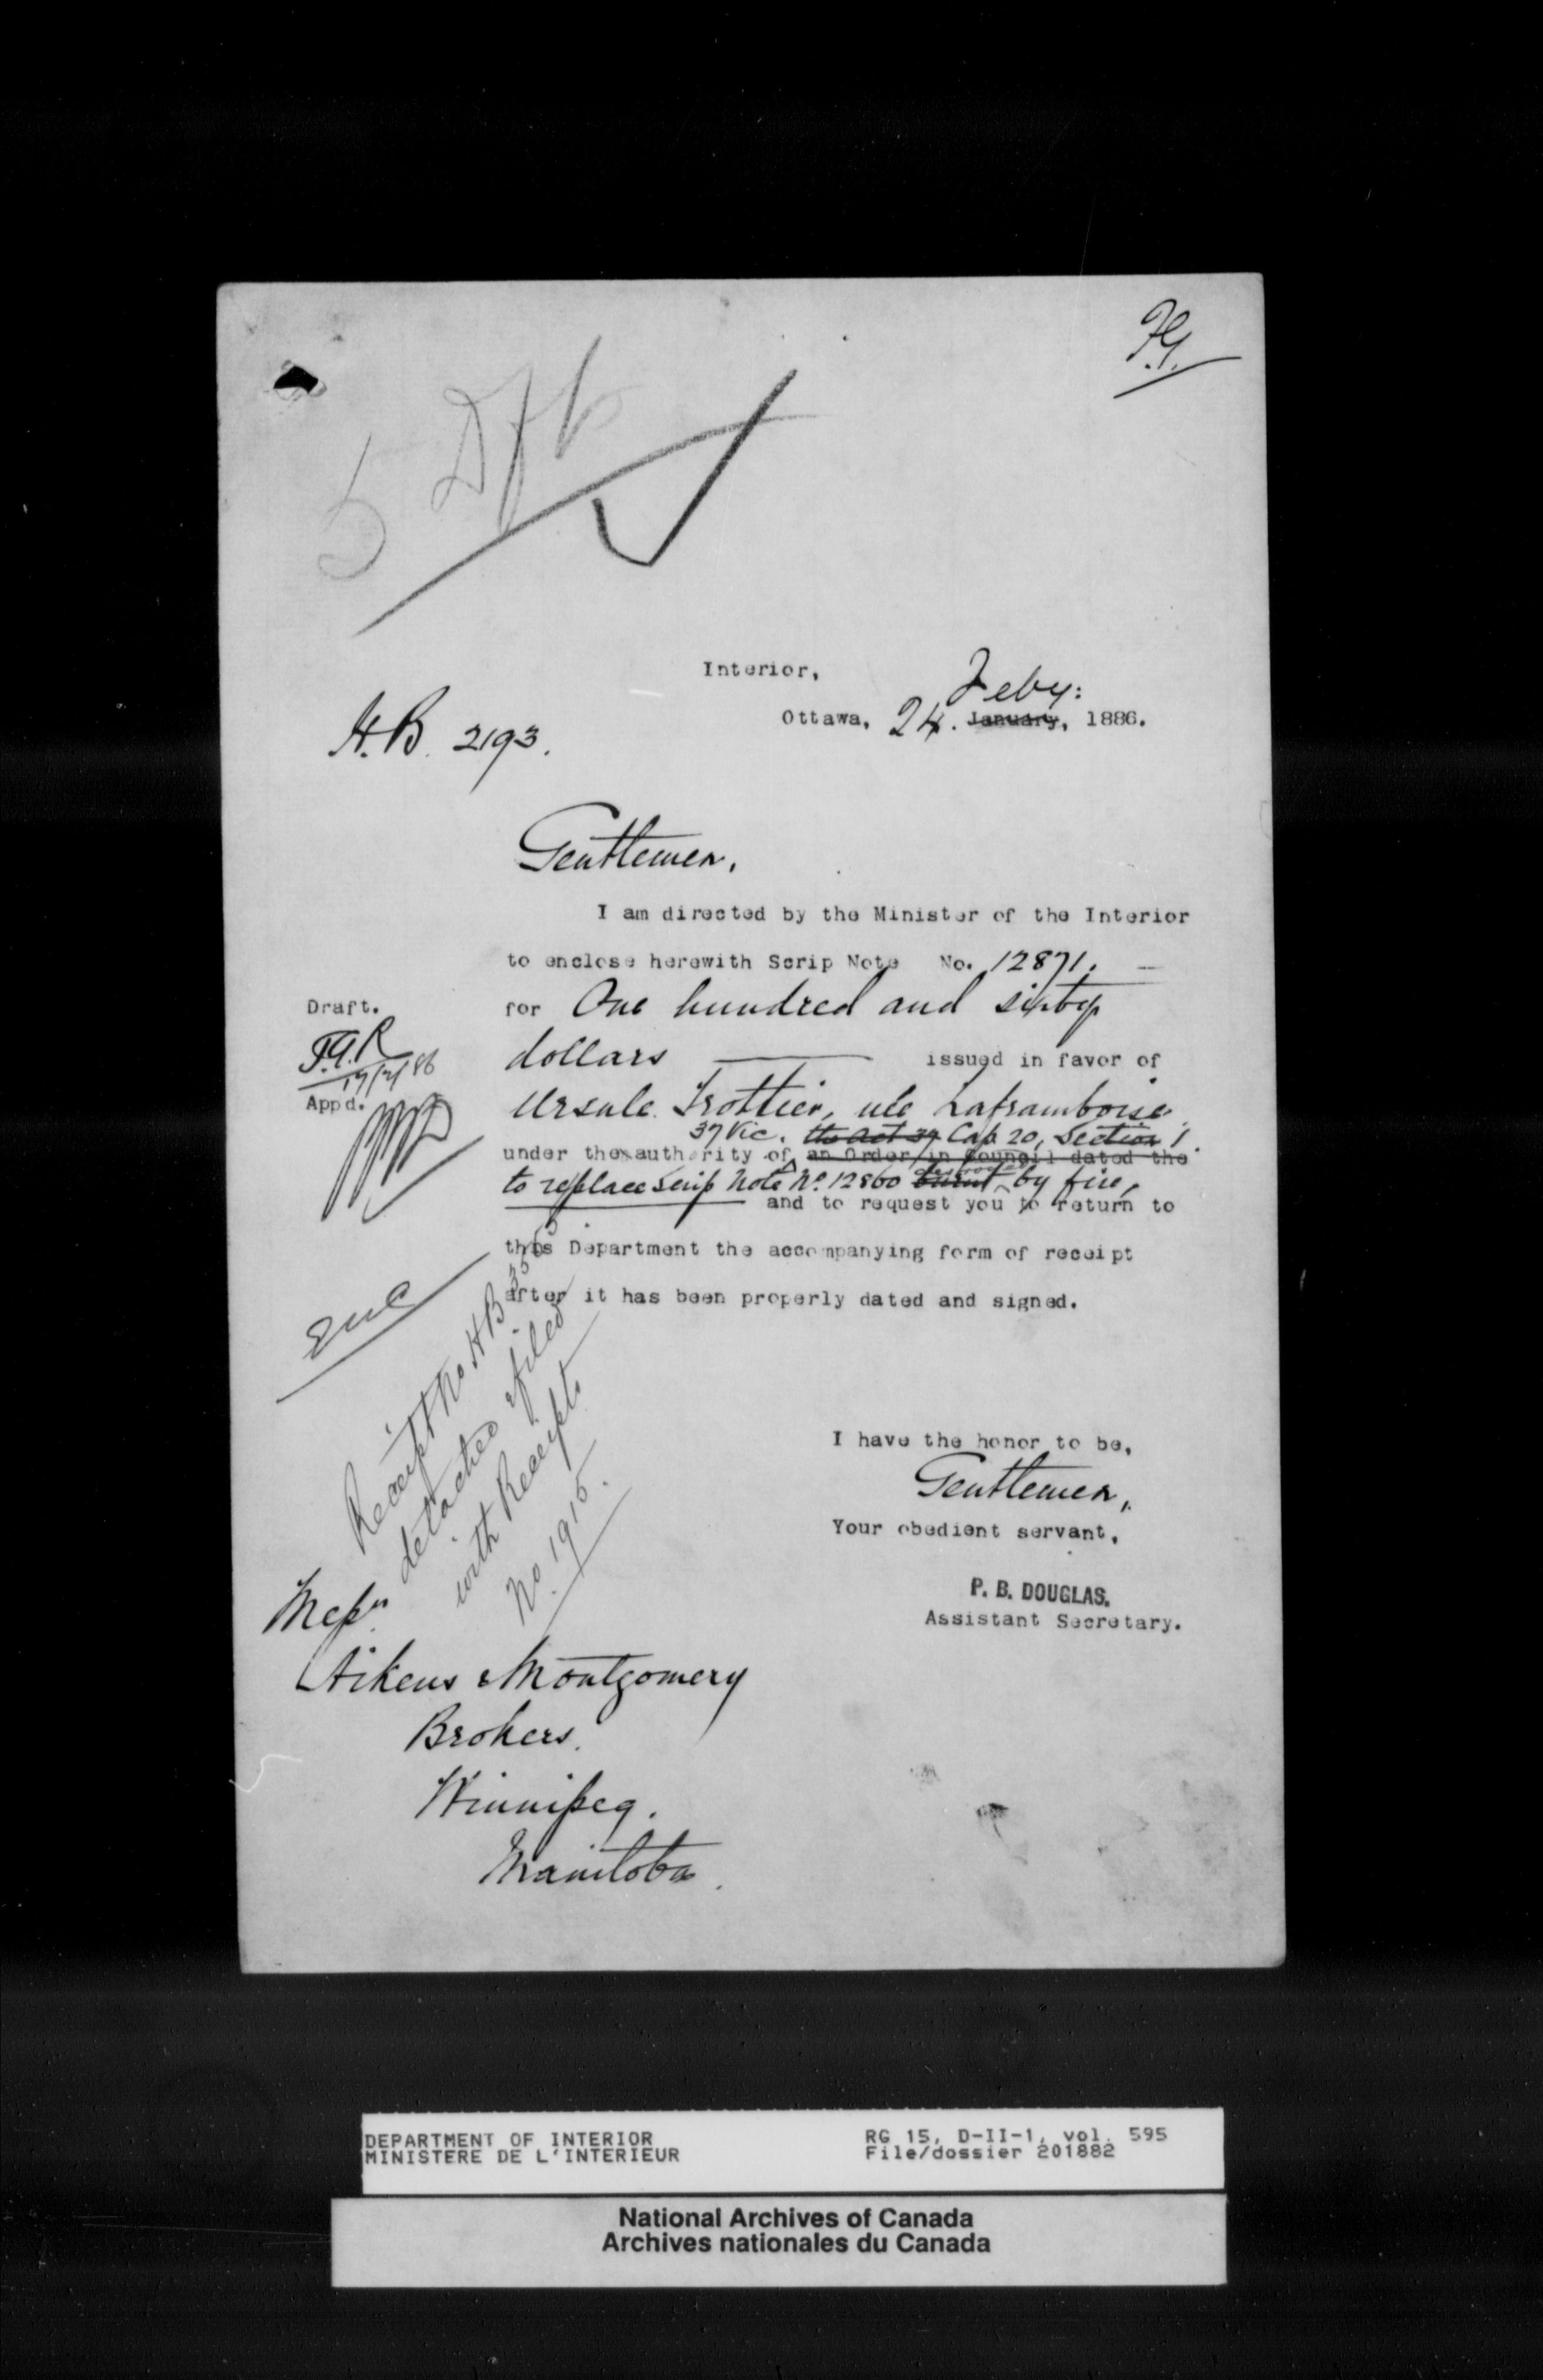 Interior,
Feby:
Ottawa, 24. January, 1886.
H.B. 2193.
Gentlemen,
I am directed by the Minister of the Interior
to enclose herewith Scrip Note No. 12871.
for One hundred and sixty
dollars issued in favor of
Ursule Trottier, née Laframboise
37 Vic. the Act 37 Cap 20, Section 1.
under the authority of an Order in Council dated the
destroyed
to replace Scrip Note No. 12860 burnt by fire,
and to request you to return to
this Department the accompanying form of receipt
after it has been properly dated and signed.
Draft.
17/2/86
Appd.
Receipt No HB
detached & filed
with Receipts
No 1915.
I have the honor to be,
Gentlemen,
Your obedient servant,
P. B. DOUGLAS.
Assistant Secretary.
Messrs.
Aikens & Montgomery
Brokers.
Winnipeg.
Manitoba.
DEPARTMENT OF INTERIOR RG 15, D-II-1, vol. 595
MINISTERE DE L'INTERIEUR File/dossier 201882
National Archives of Canada
Archives nationales du Canada